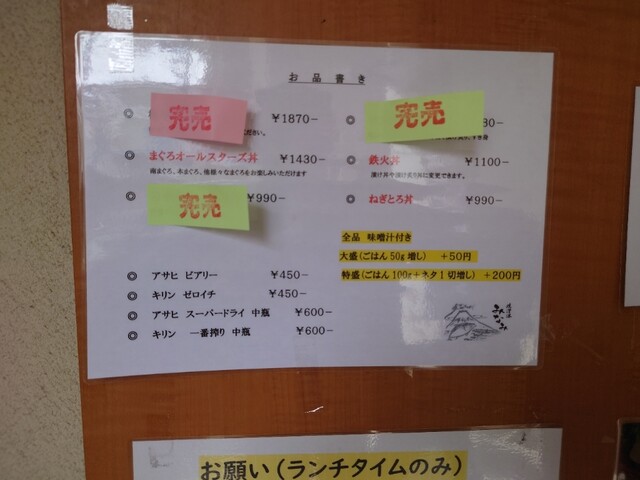 お品書き
◎ 完売 ¥1870-
ください。
◎ まぐろオールスターズ丼 ¥1430-
南まぐろ、本まぐろ、他様々なまぐろをお楽しみいただけます
◎ 完売 ¥990-
◎ 完売 80-
◎ 鉄火丼 ¥1100-
漬け丼や漬け炙り丼に変更できます。
◎ ねぎとろ丼 ¥990-
全品 味噌汁付き
大盛(ごはん50g増し) +50円
特盛(ごはん100g+ネタ1切増し) +200円
◎ アサヒ ビアリー ¥450-
◎ キリン ゼロイチ ¥450-
◎ アサヒ スーパードライ 中瓶 ¥600-
◎ キリン 一番搾り 中瓶 ¥600-
お願い(ランチタイムのみ)